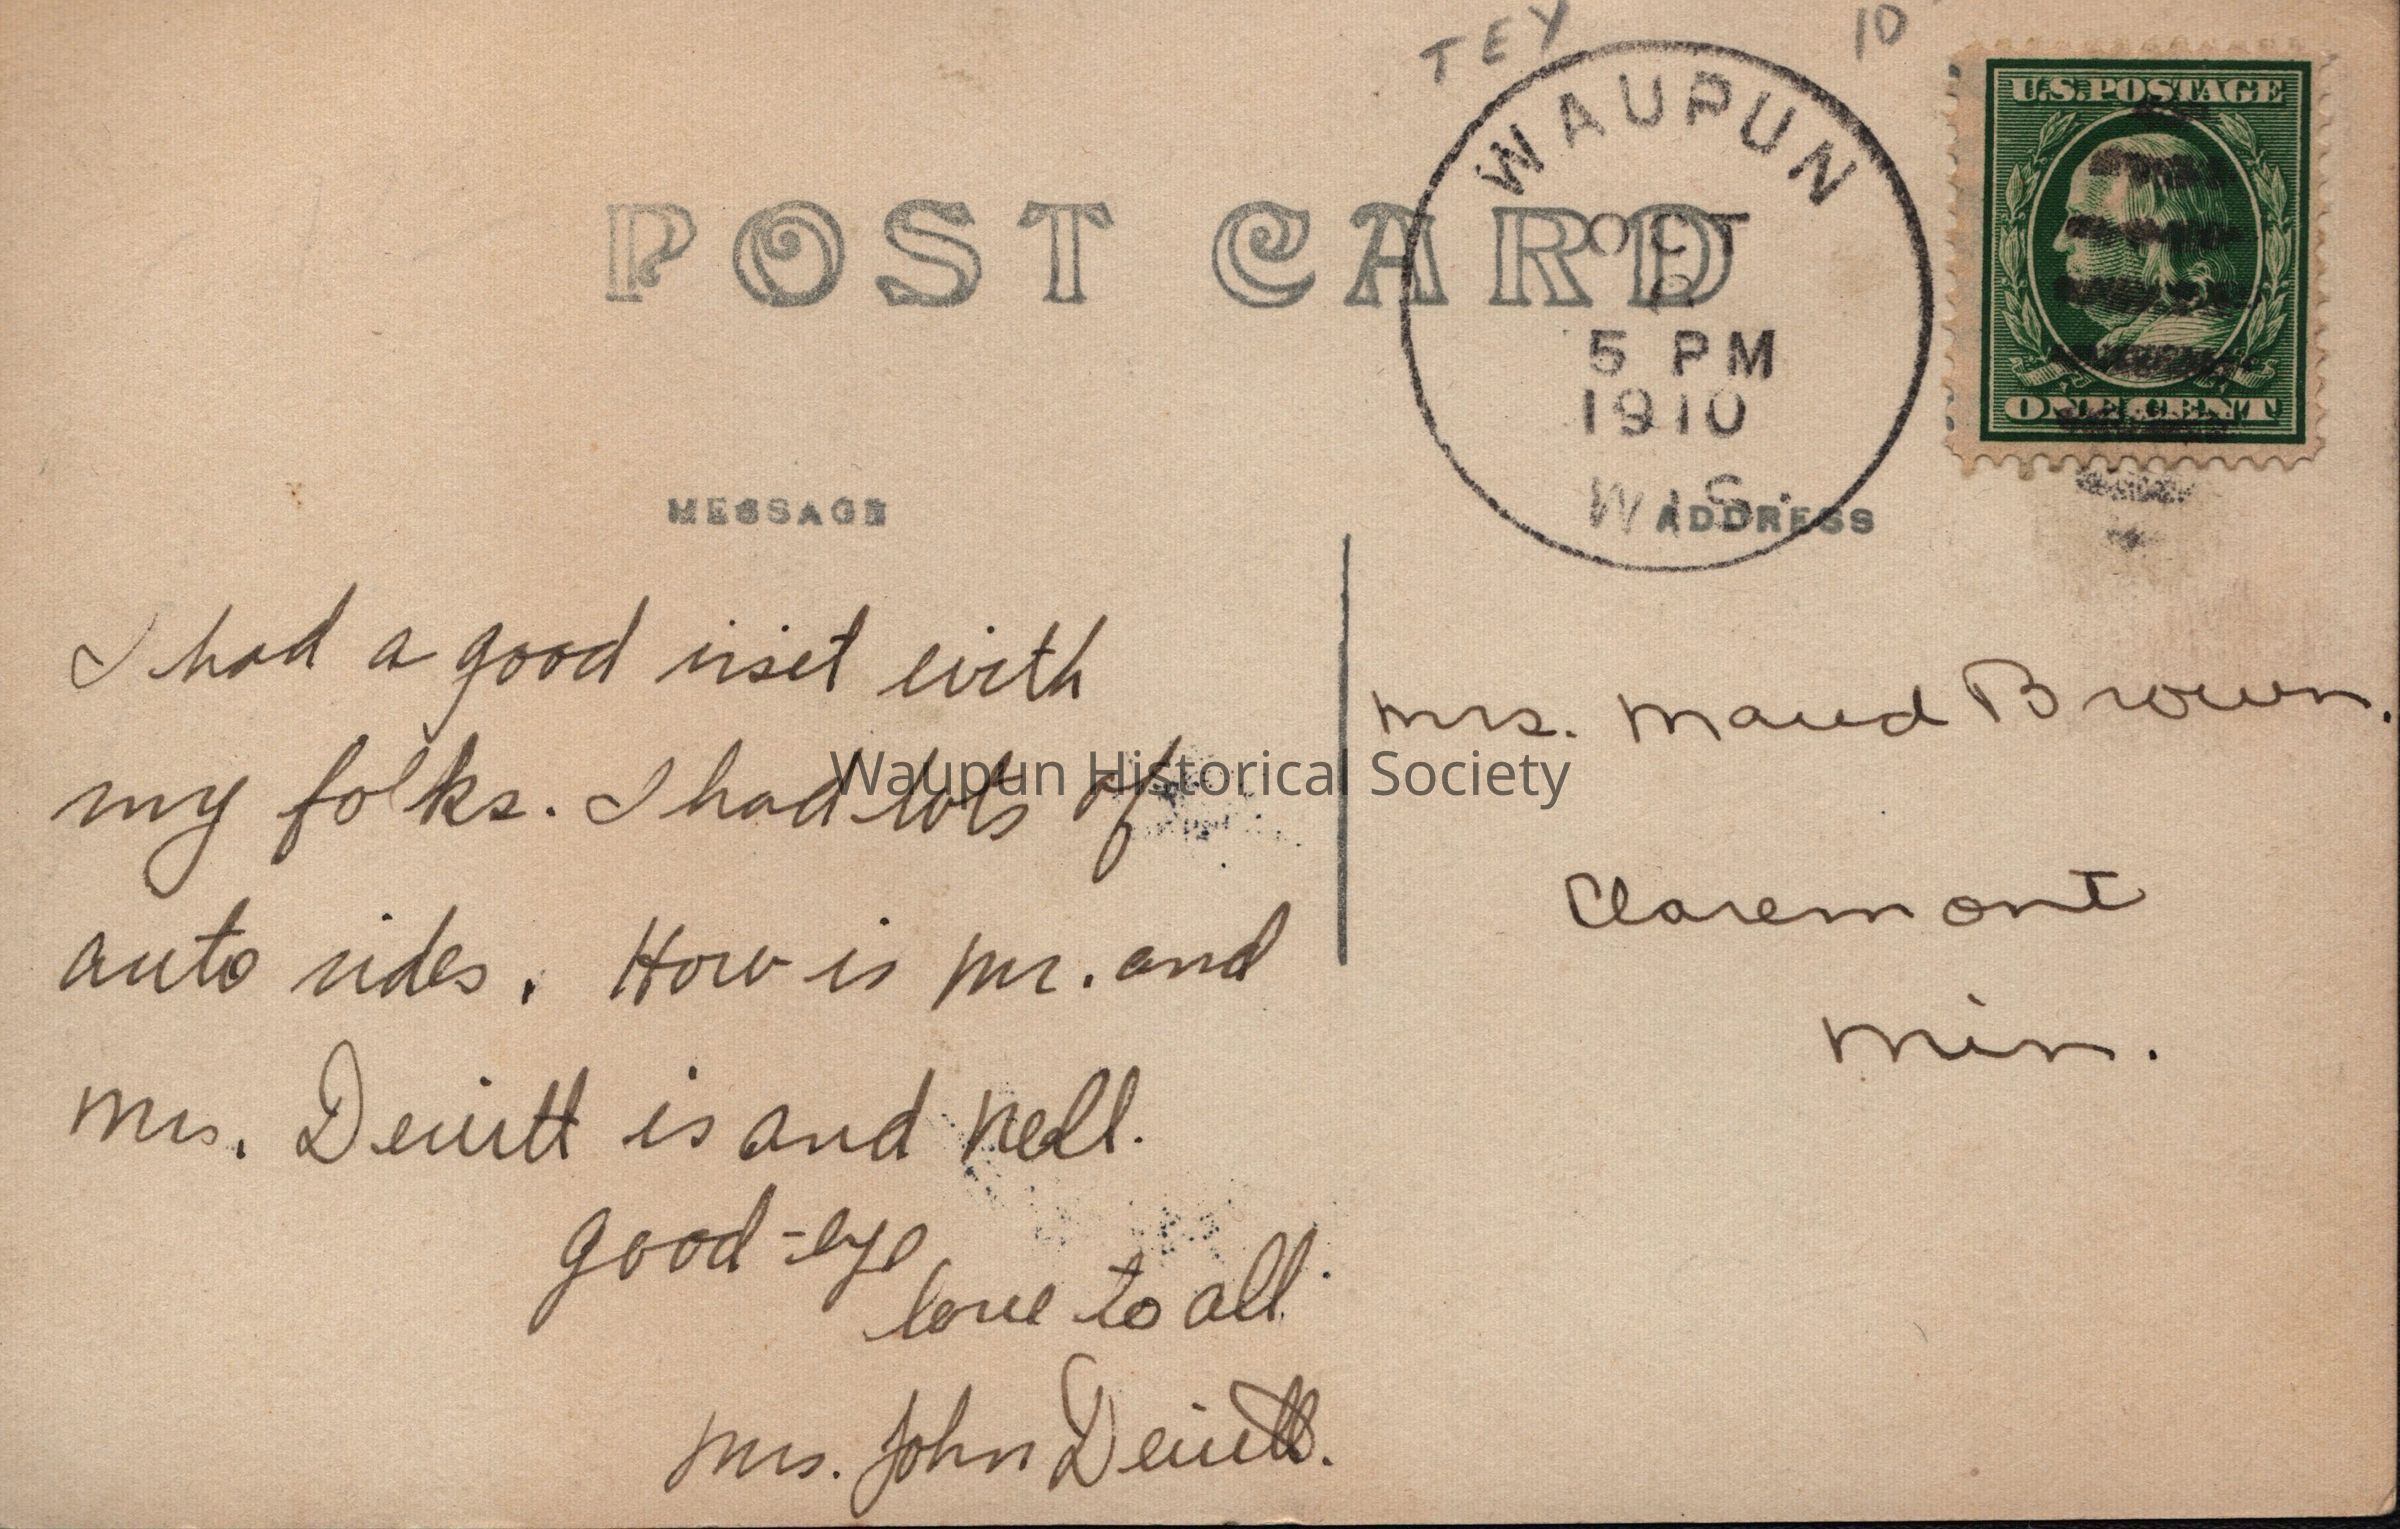 TEY 10
U.S. POSTAGE
ONE CENT
WAUPUN
OCT
6
5 PM
1910
WIS.
POST CARD
MESSAGE
ADDRESS
I had a good viset with
my folks. I had lots of
auto rides. How is Mr. and
Mrs. Dewitt is and Nell.
good-bye
love to all.
Mrs. John Dewitt.
Mrs. Maud Brown.
Claremont
Min.
Waupun Historical Society